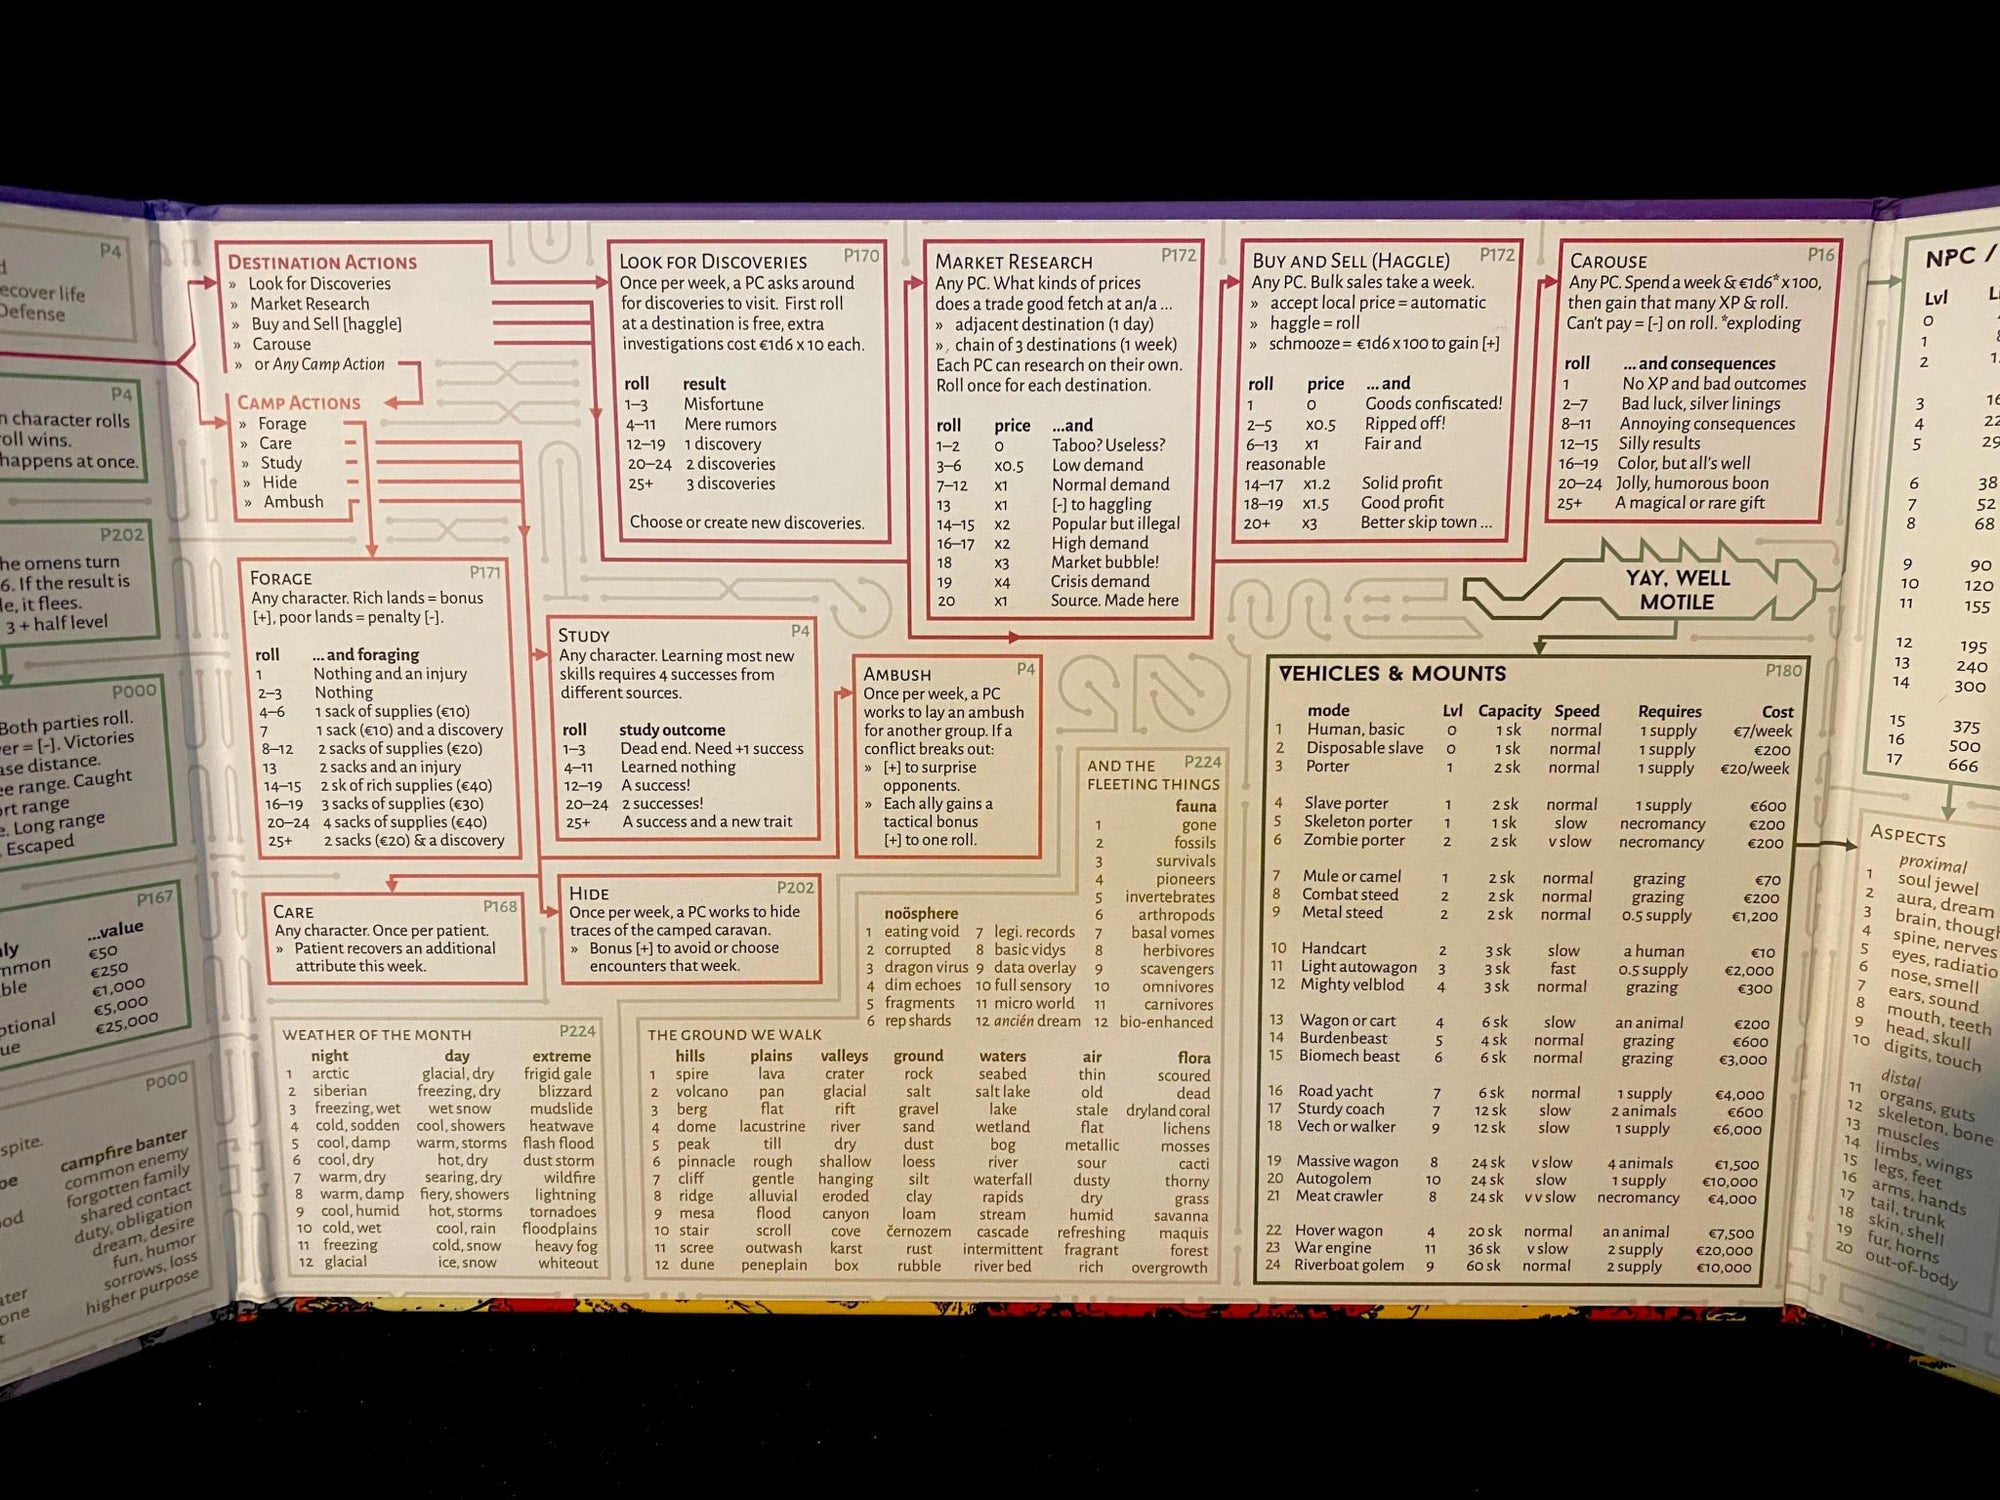 P4
ecover life
Defense
P4
n character rolls
roll wins.
happens at once.
P202
he omens turn
6. If the result is
le, it flees.
3 + half level
P000
Both parties roll.
er = [-]. Victories
ase distance.
ee range. Caught
ort range
e. Long range
Escaped
P167
...value
mmon €50
ble €250
€1,000
ptional €5,000
ue €25,000
P000
spite.
campfire banter
common enemy
forgotten family
shared contact
duty, obligation
dream, desire
fun, humor
sorrows, loss
higher purpose
DESTINATION ACTIONS
» Look for Discoveries
» Market Research
» Buy and Sell [haggle]
» Carouse
» or Any Camp Action
CAMP ACTIONS
» Forage
» Care
» Study
» Hide
» Ambush
LOOK FOR DISCOVERIES P170
Once per week, a PC asks around
for discoveries to visit. First roll
at a destination is free, extra
investigations cost €1d6 x 10 each.
roll result
1–3 Misfortune
4–11 Mere rumors
12–19 1 discovery
20–24 2 discoveries
25+ 3 discoveries
Choose or create new discoveries.
MARKET RESEARCH P172
Any PC. What kinds of prices
does a trade good fetch at an/a ...
» adjacent destination (1 day)
» chain of 3 destinations (1 week)
Each PC can research on their own.
Roll once for each destination.
roll price ...and
1–2 0 Taboo? Useless?
3–6 x0.5 Low demand
7–12 x1 Normal demand
13 x1 [-] to haggling
14–15 x2 Popular but illegal
16–17 x2 High demand
18 x3 Market bubble!
19 x4 Crisis demand
20 x1 Source. Made here
BUY AND SELL (HAGGLE) P172
Any PC. Bulk sales take a week.
» accept local price = automatic
» haggle = roll
» schmooze = €1d6 x 100 to gain [+]
roll price ... and
1 0 Goods confiscated!
2–5 x0.5 Ripped off!
6–13 x1 Fair and
reasonable
14–17 x1.2 Solid profit
18–19 x1.5 Good profit
20+ x3 Better skip town ...
CAROUSE P16
Any PC. Spend a week & €1d6* x 100,
then gain that many XP & roll.
Can't pay = [-] on roll. *exploding
roll ... and consequences
1 No XP and bad outcomes
2–7 Bad luck, silver linings
8–11 Annoying consequences
12–15 Silly results
16–19 Color, but all's well
20–24 Jolly, humorous boon
25+ A magical or rare gift
FORAGE P171
Any character. Rich lands = bonus
[+], poor lands = penalty [-].
roll ... and foraging
1 Nothing and an injury
2–3 Nothing
4–6 1 sack of supplies (€10)
7 1 sack (€10) and a discovery
8–12 2 sacks of supplies (€20)
13 2 sacks and an injury
14–15 2 sk of rich supplies (€40)
16–19 3 sacks of supplies (€30)
20–24 4 sacks of supplies (€40)
25+ 2 sacks (€20) & a discovery
STUDY P4
Any character. Learning most new
skills requires 4 successes from
different sources.
roll study outcome
1–3 Dead end. Need +1 success
4–11 Learned nothing
12–19 A success!
20–24 2 successes!
25+ A success and a new trait
AMBUSH P4
Once per week, a PC
works to lay an ambush
for another group. If a
conflict breaks out:
» [+] to surprise
opponents.
» Each ally gains a
tactical bonus
[+] to one roll.
CARE P168
Any character. Once per patient.
» Patient recovers an additional
attribute this week.
HIDE P202
Once per week, a PC works to hide
traces of the camped caravan.
» Bonus [+] to avoid or choose
encounters that week.
WEATHER OF THE MONTH P224
night day extreme
1 arctic glacial, dry frigid gale
2 siberian freezing, dry blizzard
3 freezing, wet wet snow mudslide
4 cold, sodden cool, showers heatwave
5 cool, damp warm, storms flash flood
6 cool, dry hot, dry dust storm
7 warm, dry searing, dry wildfire
8 warm, damp fiery, showers lightning
9 cool, humid hot, storms tornadoes
10 cold, wet cool, rain floodplains
11 freezing cold, snow heavy fog
12 glacial ice, snow whiteout
AND THE P224
FLEETING THINGS
fauna
1 gone
2 fossils
3 survivals
4 pioneers
5 invertebrates
6 arthropods
7 basal vomes
8 herbivores
9 scavengers
10 omnivores
11 carnivores
12 bio-enhanced
noösphere
1 eating void 7 legi. records
2 corrupted 8 basic vidys
3 dragon virus 9 data overlay
4 dim echoes 10 full sensory
5 fragments 11 micro world
6 rep shards 12 ancién dream
THE GROUND WE WALK
hills plains valleys ground waters air flora
1 spire lava crater rock seabed thin scoured
2 volcano pan glacial salt salt lake old dead
3 berg flat rift gravel lake stale dryland coral
4 dome lacustrine river sand wetland flat lichens
5 peak till dry dust bog metallic mosses
6 pinnacle rough shallow loess river sour cacti
7 cliff gentle hanging silt waterfall dusty thorny
8 ridge alluvial eroded clay rapids dry grass
9 mesa flood canyon loam stream humid savanna
10 stair scroll cove černozem cascade refreshing maquis
11 scree outwash karst rust intermittent fragrant forest
12 dune peneplain box rubble river bed rich overgrowth
YAY, WELL
MOTILE
VEHICLES & MOUNTS P180
mode Lvl Capacity Speed Requires Cost
1 Human, basic 0 1 sk normal 1 supply €7/week
2 Disposable slave 0 1 sk normal 1 supply €200
3 Porter 1 2 sk normal 1 supply €20/week
4 Slave porter 1 2 sk normal 1 supply €600
5 Skeleton porter 1 1 sk slow necromancy €200
6 Zombie porter 2 2 sk v slow necromancy €200
7 Mule or camel 1 2 sk normal grazing €70
8 Combat steed 2 2 sk normal grazing €200
9 Metal steed 2 2 sk normal 0.5 supply €1,200
10 Handcart 2 3 sk slow a human €10
11 Light autowagon 3 3 sk fast 0.5 supply €2,000
12 Mighty velblod 4 3 sk normal grazing €300
13 Wagon or cart 4 6 sk slow an animal €200
14 Burdenbeast 5 4 sk normal grazing €600
15 Biomech beast 6 6 sk normal grazing €3,000
16 Road yacht 7 6 sk normal 1 supply €4,000
17 Sturdy coach 7 12 sk slow 2 animals €600
18 Vech or walker 9 12 sk slow 1 supply €6,000
19 Massive wagon 8 24 sk v slow 4 animals €1,500
20 Autogolem 10 24 sk slow 1 supply €10,000
21 Meat crawler 8 24 sk v v slow necromancy €4,000
22 Hover wagon 4 20 sk normal an animal €7,500
23 War engine 11 36 sk v slow 2 supply €20,000
24 Riverboat golem 9 60 sk normal 2 supply €10,000
NPC /
Lvl
0
1
2
3 16
4 22
5 29
6 38
7 52
8 68
9 90
10 120
11 155
12 195
13 240
14 300
15 375
16 500
17 666
ASPECTS
proximal
1 soul jewel
2 aura, dream
3 brain, though
4 spine, nerves
5 eyes, radiatio
6 nose, smell
7 ears, sound
8 mouth, teeth
9 head, skull
10 digits, touch
distal
11 organs, guts
12 skeleton, bone
13 muscles
14 limbs, wings
15 legs, feet
16 arms, hands
17 tail, trunk
18 skin, shell
19 fur, horns
20 out-of-body